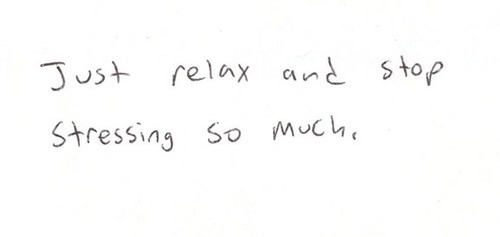 Just relax and stop
stressing so much.